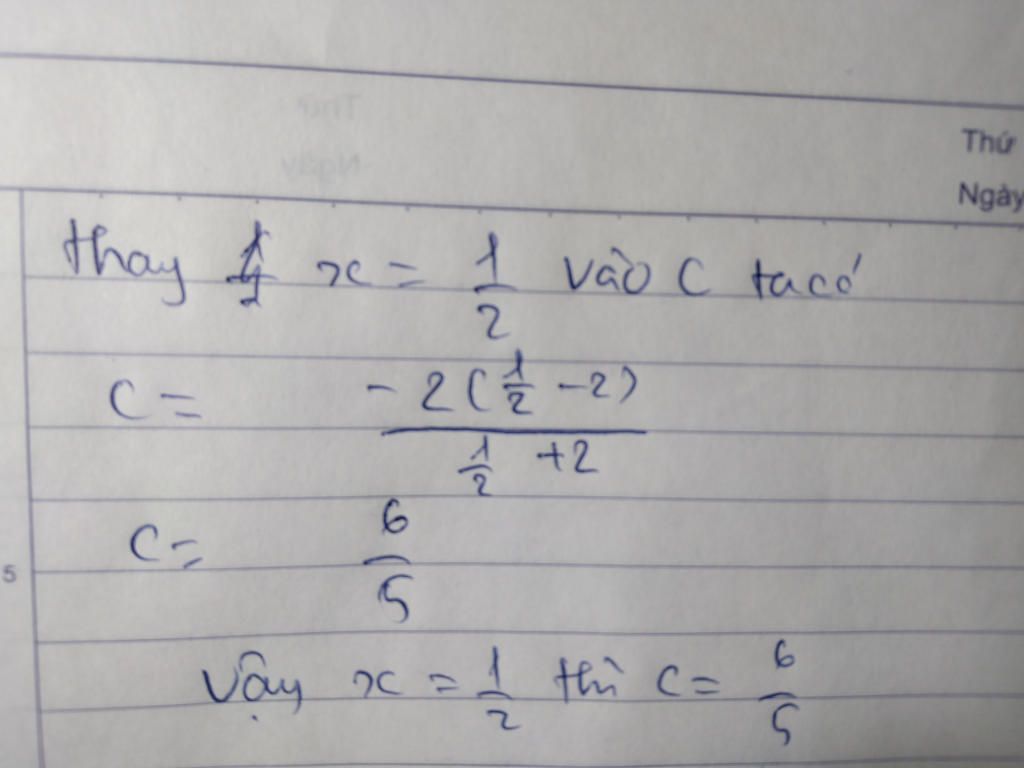 Thứ
Ngày
thay x = 1/2 vào C ta có
C = -2(1/2 - 2) / (1/2 + 2)
C = 6/5
5
Vậy x = 1/2 thì C = 6/5